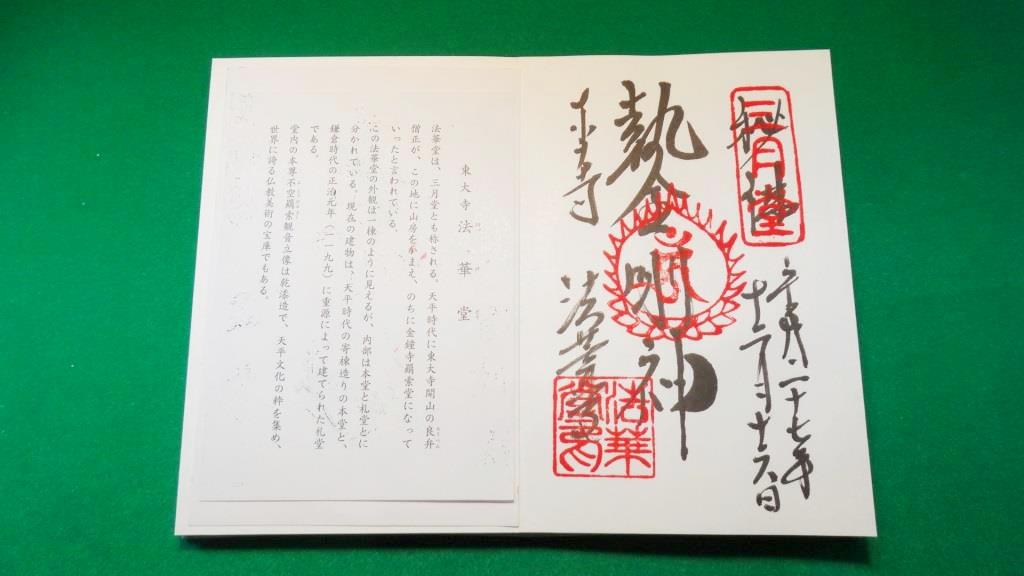 三月堂
平成二十七年
十二月十六日
執金剛神
東大寺 法華堂
法華堂印
東大寺 法華堂
法華堂は、三月堂とも称される。天平時代に東大寺開山の良弁
僧正が、この地に山房をかまえ、のちに金鐘寺羂索堂になって
いったと言われている。
この法華堂の外観は一棟のように見えるが、内部は本堂と礼堂とに
分かれている。現在の建物は、天平時代の寄棟造りの本堂と、
鎌倉時代の正治元年（一一九九）に重源によって建てられた礼堂
である。
堂内の本尊不空羂索観音立像は乾漆造で、天平文化の粋を集め、
世界に誇る仏教美術の宝庫でもある。